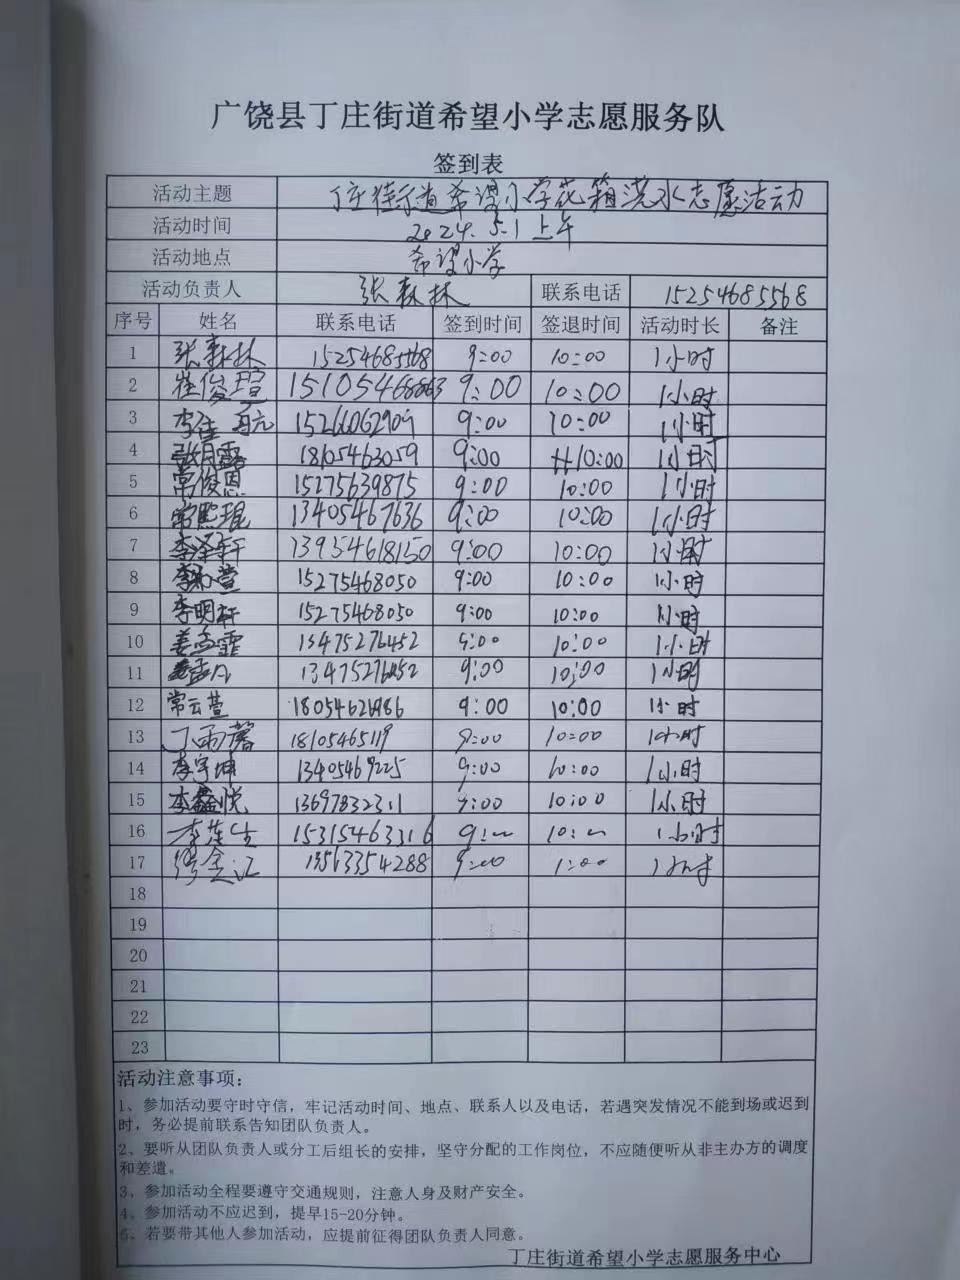 广饶县丁庄街道希望小学志愿服务队
签到表
活动主题 丁庄街道希望小学花箱浇水志愿活动
活动时间 2024.5.1上午
活动地点 希望小学
活动负责人 张森林 联系电话 15254685568
序号 姓名 联系电话 签到时间 签退时间 活动时长 备注
1 张森林 15254685568 9:00 10:00 1小时
2 崔俊瑄 15105468863 9:00 10:00 1小时
3 李佳 9:00 10:00 1小时
4 张月露 18105463059 9:00 10:00 1小时
5 常俊恩 15275639875 9:00 10:00 1小时
6 常熙琨 13405467636 9:00 10:00 1小时
7 李泽轩 13954618150 9:00 10:00 1小时
8 李 萱 15275468050 9:00 10:00 1小时
9 李明轩 15275468050 9:00 10:00 1小时
10 姜孟霏 13475276452 9:00 10:00 1小时
11 9:00 10:00 1小时
12 常云萱 9:00 10:00 1小时
13 丁雨馨 18105465119 9:00 10:00 1小时
14 李宇坤 13405469225 9:00 10:00 1小时
15 李鑫悦 13697832311 9:00 10:00 1小时
16 李 生 15315463316 9: 10: 1小时
17 13563354288 9:00 1:00 1小时
18
19
20
21
22
23
活动注意事项:
1、参加活动要守时守信，牢记活动时间、地点、联系人以及电话，若遇突发情况不能到场或迟到
时，务必提前联系告知团队负责人。
2、要听从团队负责人或分工后组长的安排，坚守分配的工作岗位，不应随便听从非主办方的调度
和差遣。
3、参加活动全程要遵守交通规则，注意人身及财产安全。
4、参加活动不应迟到，提早15-20分钟。
5、若要带其他人参加活动，应提前征得团队负责人同意。
丁庄街道希望小学志愿服务中心